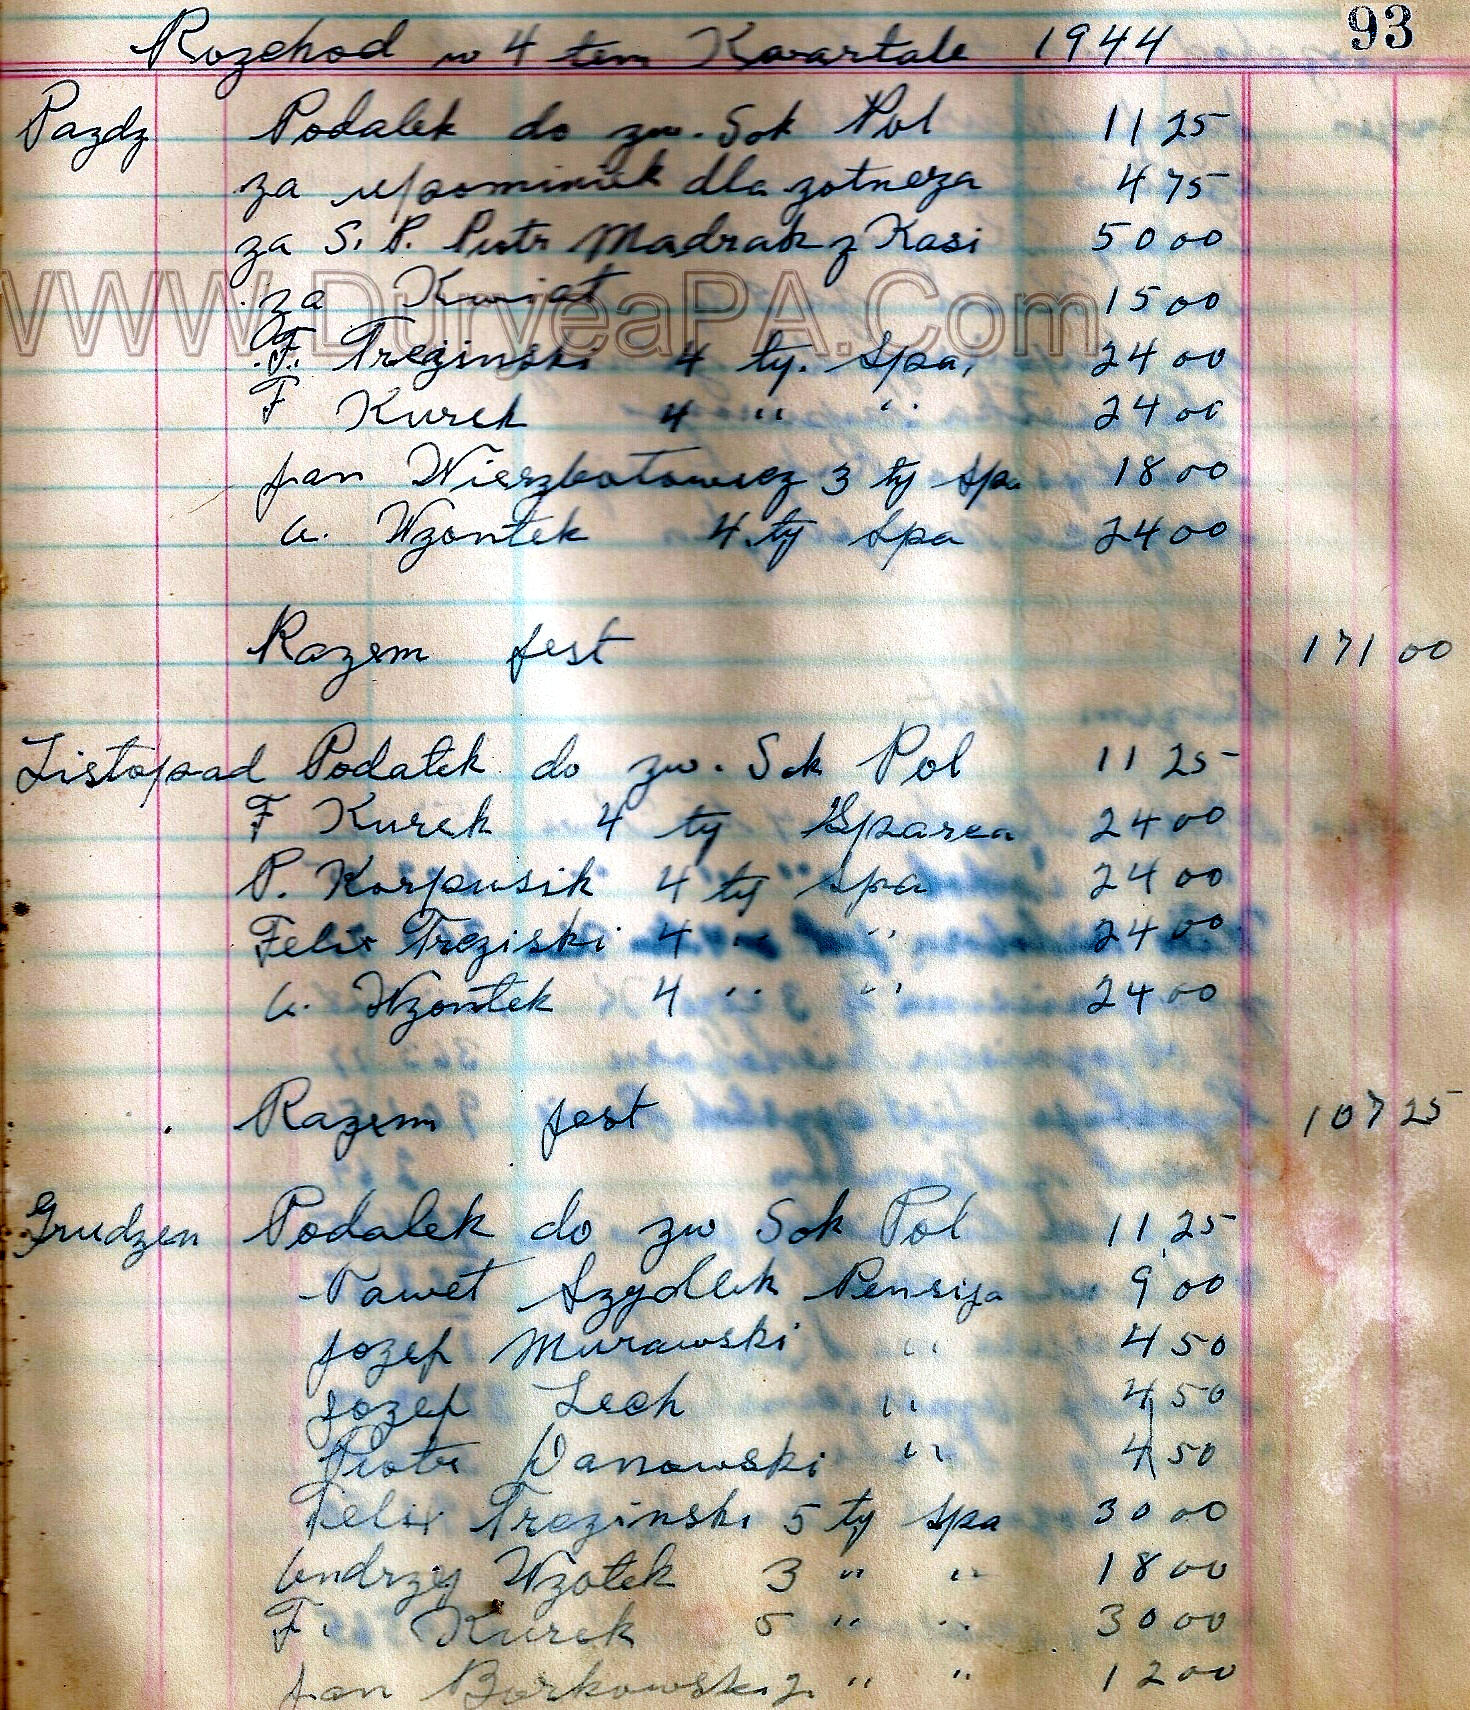 93
Rozchod w 4 tem Kwartale 1944
Pazdz Podatek do zw. Sok Pol 11 25
za upominek dla zotneza 4 75
za S. P. Piotr Madrak z Kasi 50 00
za Kwiat 15 00
WWW.DuryeaPA.Com
F. Trezinski 4 ty. Spa. 24 00
F Kurek 4 " " 24 00
Jan Wierzbotowicz 3 ty Spa 18 00
A. Wzontek 4 ty Spa 24 00
Razem jest 171 00
Listopad Podatek do zw. Sok Pol 11 25
F Kurek 4 ty Sparca 24 00
P. Karpusik 4 ty Spa 24 00
Felix Treziski 4 " " 24 00
A. Wzontek 4 " " 24 00
Razem jest 107 25
Grudzen Podatek do zw Sok Pol 11 25
Pawet Szydlek Pensija 9 00
Jozef Murawski " 4 50
Jozef Lech " 4 50
Piotr Danowski " 4 50
Felix Trezinski 5 ty Spa 30 00
Andrzej Wzotek 3 " " 18 00
F. Kurek 5 " " 30 00
Jan Borkowski 2 " " 12 00